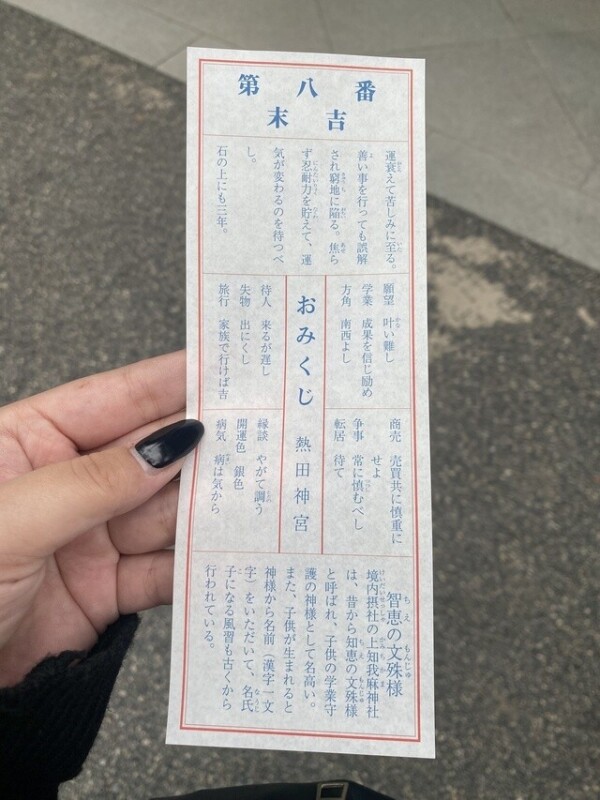 第八番
末吉
運衰えて苦しみに至る。
善い事を行っても誤解
され窮地に陥る。焦ら
ず忍耐力を貯えて、運
気が変わるのを待つべ
し。
石の上にも三年。
願望 叶い難し
学業 成果を信じ励め
方角 南西よし
商売 売買共に慎重に
せよ
争事 常に慎むべし
転居 待て
おみくじ 熱田神宮
待人 来るが遅し
失物 出にくし
旅行 家族で行けば吉
縁談 やがて調う
開運色 銀色
病気 病は気から
智恵の文殊様
境内摂社の上知我麻神社
は、昔から知恵の文殊様
と呼ばれ、子供の学業守
護の神様として名高い。
また、子供が生まれると
神様から名前（漢字一文
字）をいただいて、名氏
子になる風習も古くから
行われている。